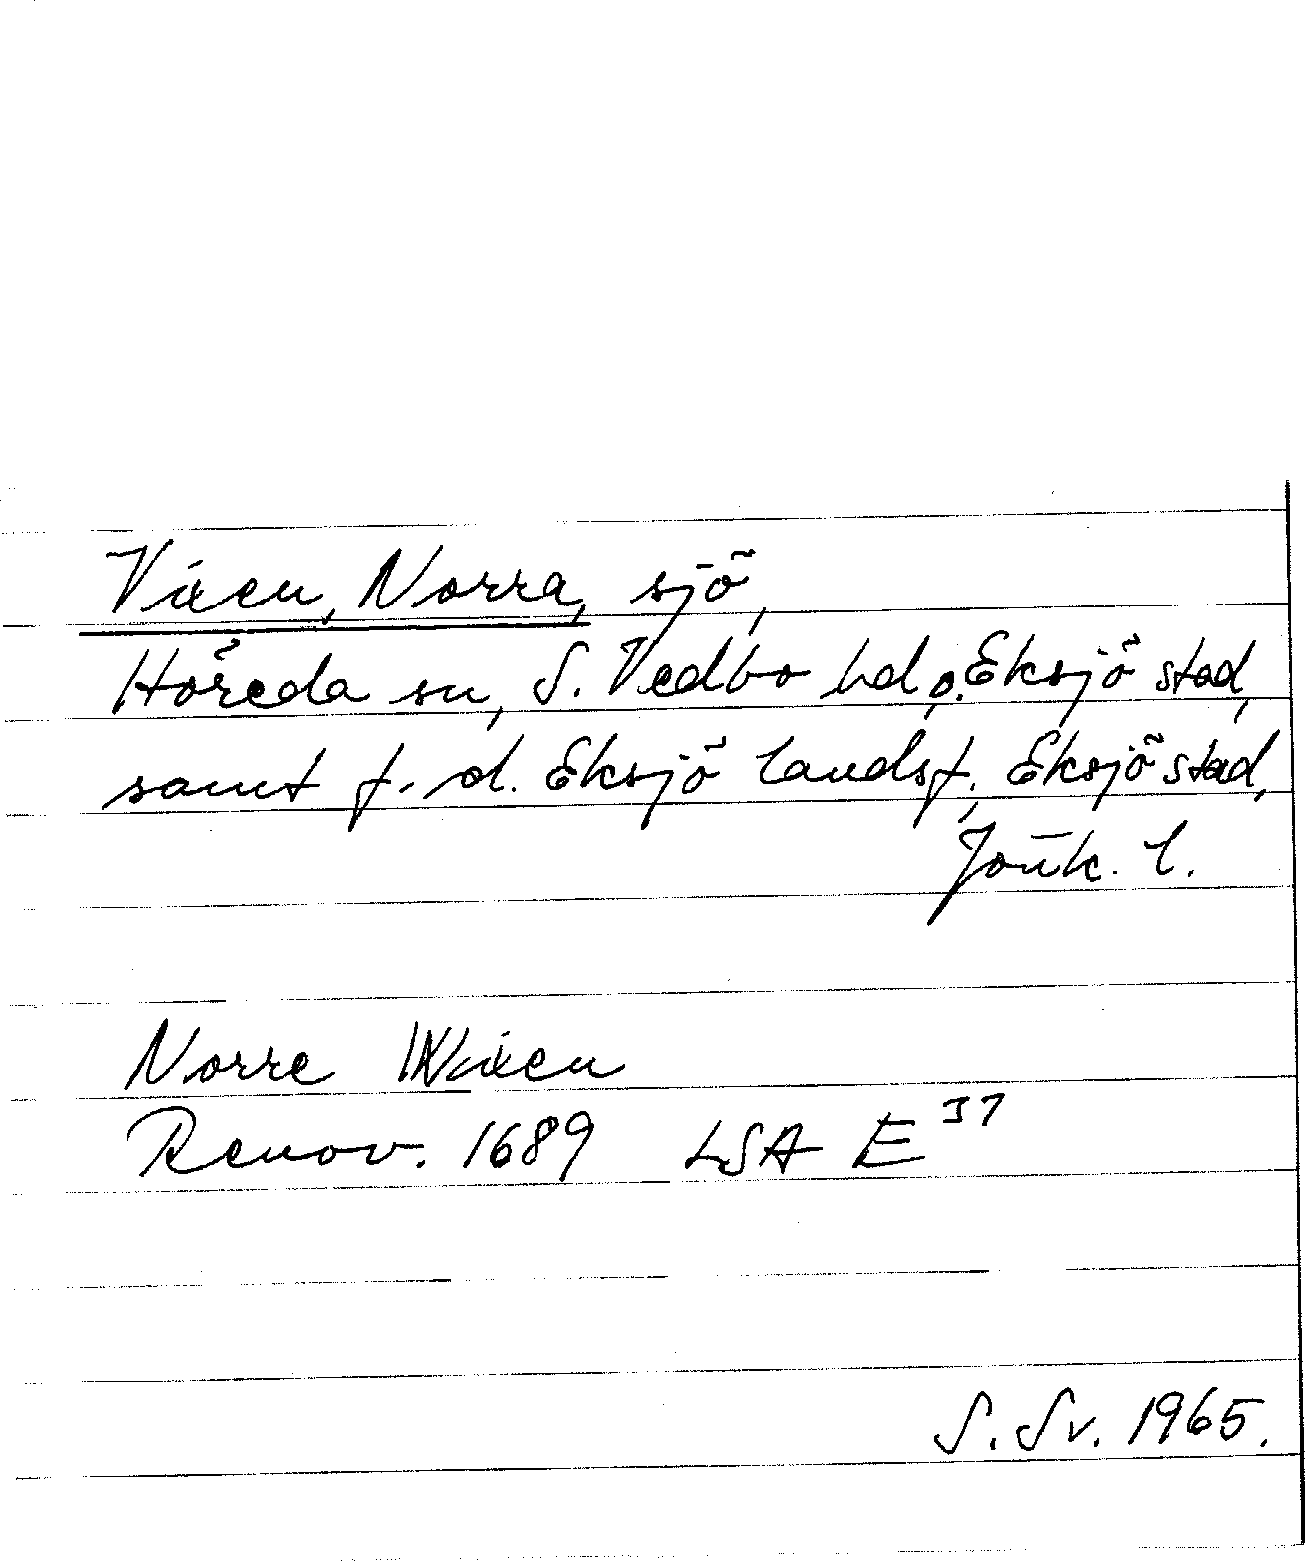 Vixen, Norra, sjö,
Höreda sn, S. Vedbo hd o. Eksjö stad,
samt f. d. Eksjö landsf., Eksjö stad,
Jönk. l.
Norre Wixen
Renov. 1689 LSA E 37
S. Sv. 1965.